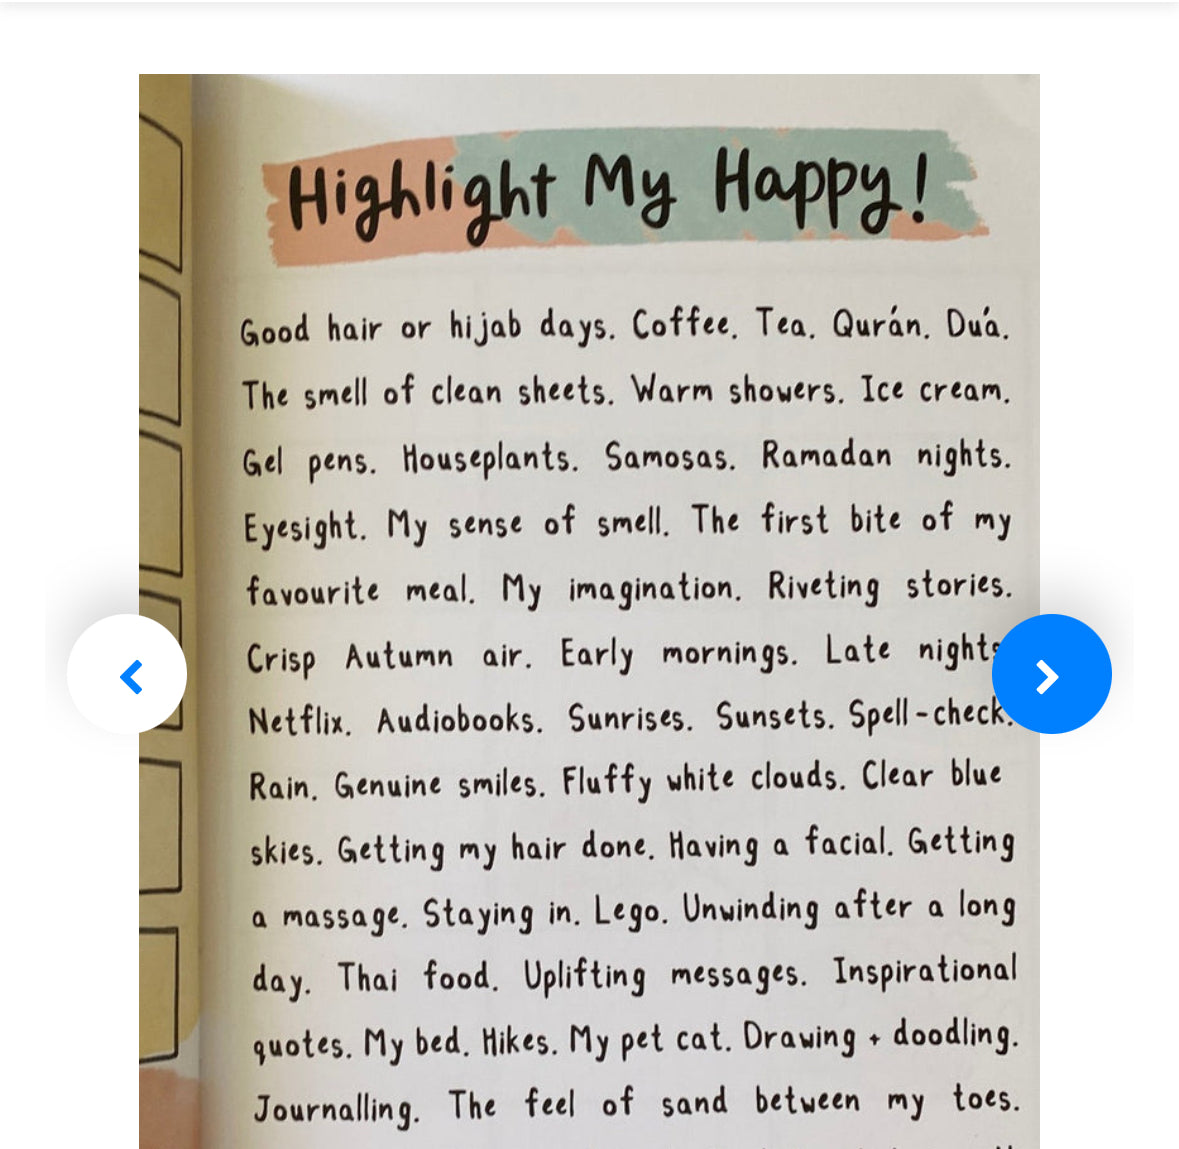 Highlight My Happy!
Good hair or hijab days. Coffee. Tea. Qur'án. Du'á.
The smell of clean sheets. Warm showers. Ice cream.
Gel pens. Houseplants. Samosas. Ramadan nights.
Eyesight. My sense of smell. The first bite of my
favourite meal. My imagination. Riveting stories.
Crisp Autumn air. Early mornings. Late nights
Netflix. Audiobooks. Sunrises. Sunsets. Spell-check.
Rain. Genuine smiles. Fluffy white clouds. Clear blue
skies. Getting my hair done. Having a facial. Getting
a massage. Staying in. Lego. Unwinding after a long
day. Thai food. Uplifting messages. Inspirational
quotes. My bed. Hikes. My pet cat. Drawing + doodling.
Journalling. The feel of sand between my toes.